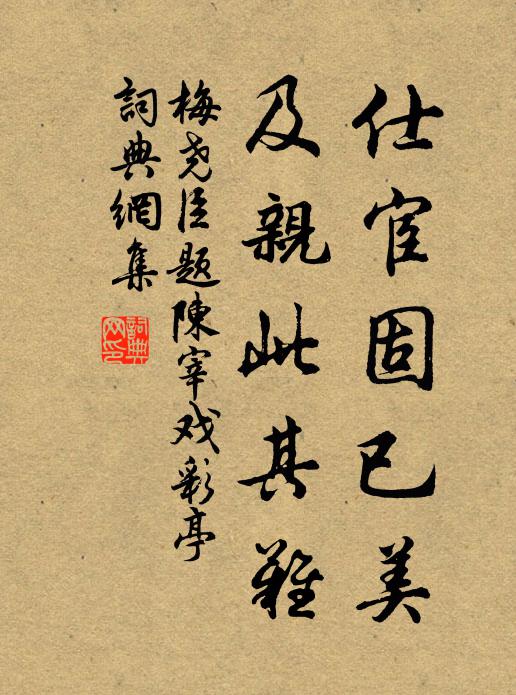 仕宦固已美
及親此其難
梅尧臣题陳宰戏彩亭
詞典網集
詞典网印